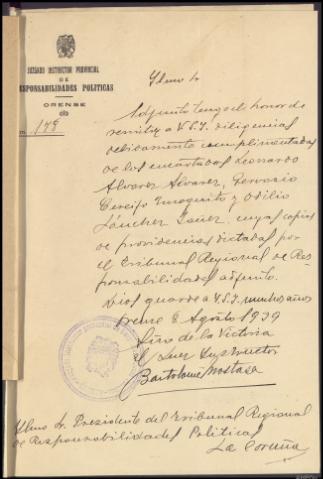 JUZGADO INSTRUCTOR PROVINCIAL
DE
RESPONSABILIDADES POLITICAS
ORENSE
178
Ilmo Sr
Adjunto tengo el honor de
remitir a V.S.I. diligencias
debidamente cumplimentadas
de los encartados Leonardo
Alvarez Alvarez, Gervasio
Cerejo y Odilio
Sánchez cuyas copias
de providencias dictadas por
el Tribunal Regional de Res-
ponsabilidades adjunto.
Dios guarde a V.S.I. muchos años
Orense 8 Agosto 1939
Año de la Victoria
El Juez Instructor
Bartolomé Mostaza
Ilmo Sr. Presidente del Tribunal Regional
de Responsabilidades Politicas
La Coruña